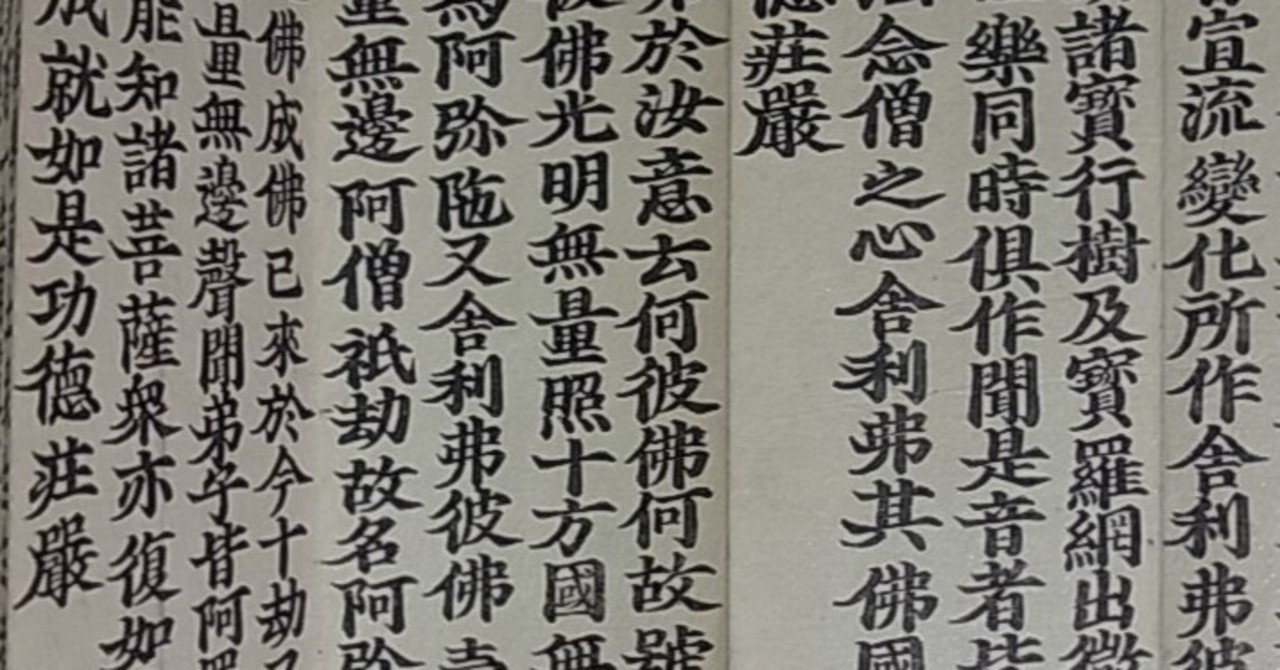 宣流變化所作舍利弗彼
諸寶行樹及寶羅網出微
樂同時俱作聞是音者皆
念僧之心舍利弗其佛國
德莊嚴
弗於汝意云何彼佛何故號
彼佛光明無量照十方國無
為阿弥陁又舍利弗彼佛壽
量無邊阿僧祇劫故名阿弥
佛成佛已來於今十劫又
量無邊聲聞弟子皆阿羅
能知諸菩薩衆亦復如
成就如是功德莊嚴